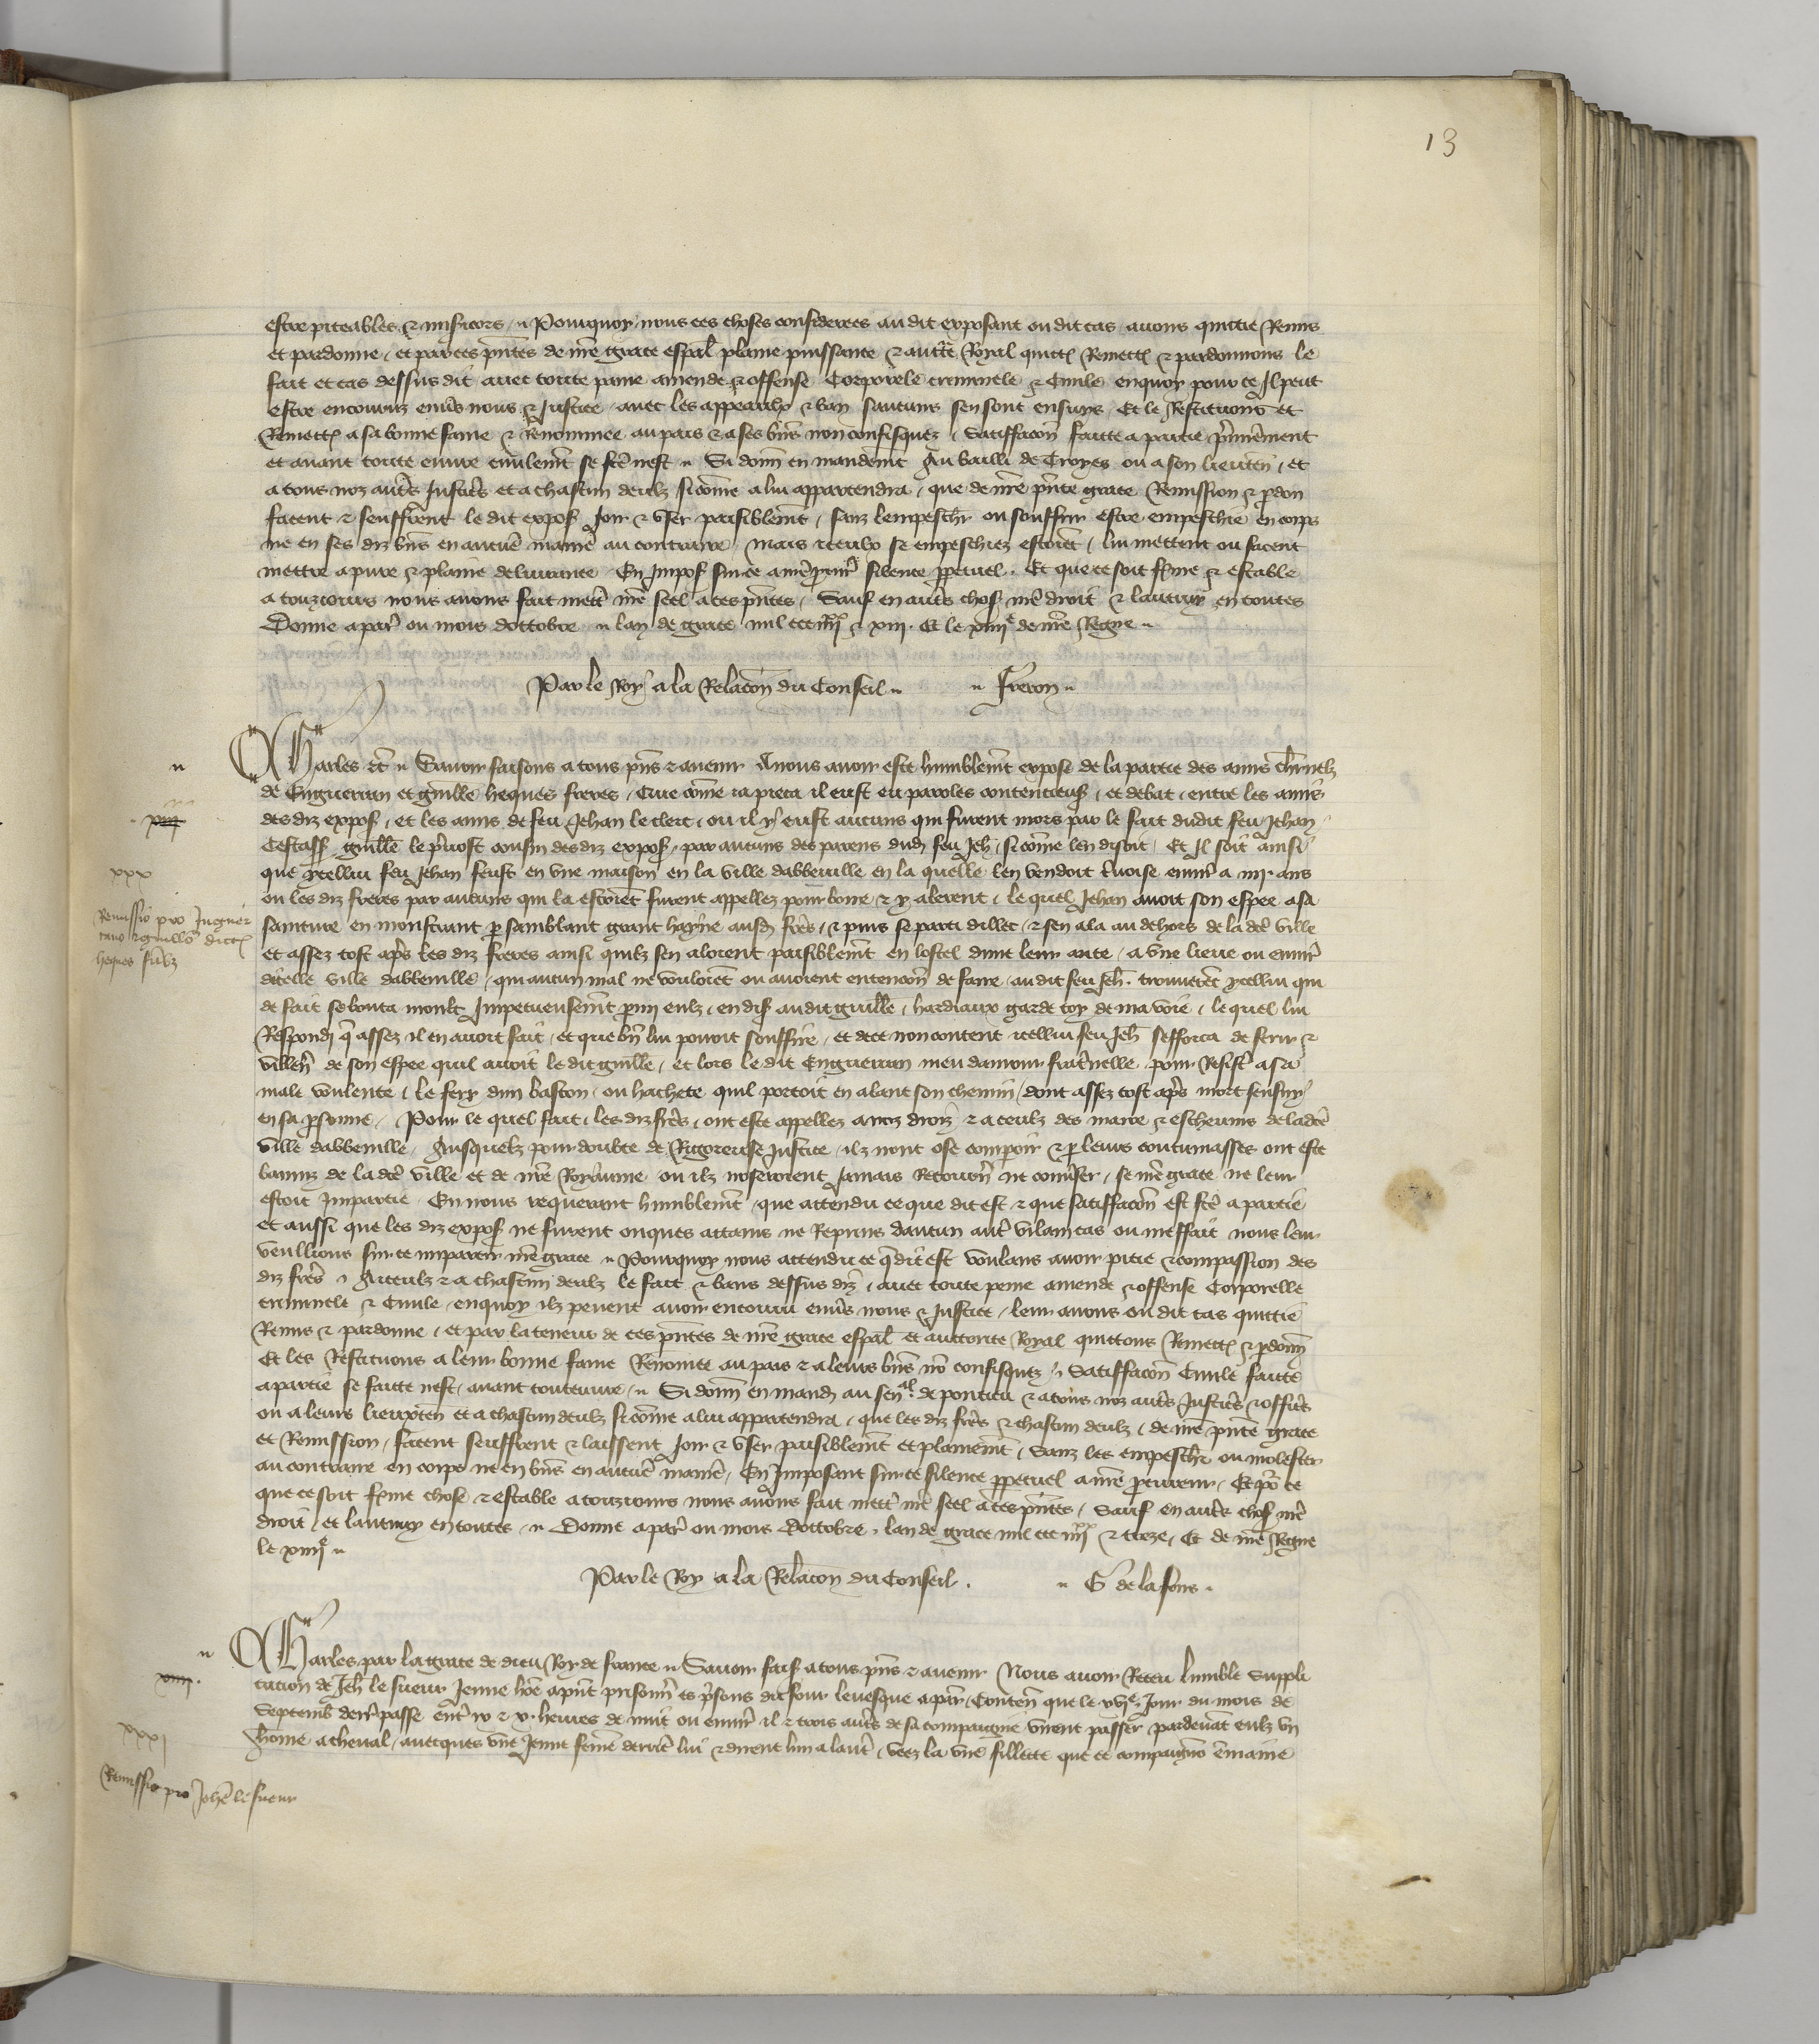 13
estre piteables & misicors Pourquoy nous ces choses considerees au dit exposant ou dit cas avons quittie Remis
et pardonne et par ces pñtes de nre grace espal plaine puissance & auctte Royal quictos Remectos & pardonnons le
fait et cas dessus dit avec toute paine amende & offense Corporele criminele & Civile enquoy pour ce Il peut
estre encouruz envs nous & Justice avec les appeaulx & ban saucuns sen sont ensuis Et le Restituons et
Remectos a sa bonne fame & Renommee au pais & a ses bñs non confisquez Satiffacon faicte a partie pmierement
et avant toute euvre civilemt se fcte nest Si donns en mandemt Au bailli de Troyes ou a son lieuten et
a tous noz autrs Justicrs et a chascun deulz si cõme a lui appartendra que de nre pñte grace Remission & pdon
facent & seuffrent le dit expos Joir & user paisiblemt sanz lempeschr ou souffrir estre empeschie en corps
ne en ses diz bñs en aucune manie au contraire mais iceulx se empeschiez estoiet lui mettent ou facent
mettre a pure & plaine delivrance En Impos sur ce a nre pcur silence ppetuel Et que ce soit ferme & estable
a touzjours nous avons fait mett nre seel a ces pñtes Sauf en autrs chos nre droit & lautruy en toutes
Donne a par ou mois dottobre lan de grace mil ccc iiiixx & xiii Et le xiiiie de nre Regne
Par le Roy a la Relacon du Conseil Freron
Charles etc Savoir faisons a tous pñs & avenir A nous avoir este humblemt expose de la partie des amis charnelz
de Enguerran et guille heques freres Que cõme ja pieca il eust eu paroles contencieuses et debat entre les amis
des diz expos et les amis de feu Jehan le clerc ou il y eust aucuns qui furent mors par le fait dudit feu Jehan
Cestass guille le pvost cousin des diz expos par aucuns des parens dud feu Jeh si cõme len disoit Et Il soit ainsi
que ycellui feu Jehan feust en une maison en la ville dabbeville en la quelle len vendoit cvoise envir a iiii ans
ou les diz freres par aucuns qui la estoiet furent appellez pour boire & y alerent le quel Jehan avoit son espee a sa
sainture en monstrant p samblant grant hayne ausd frers & puis se parti dillec & sen ala au dehors de la dce ville
et assez tost aprs les diz freres ainsi quilz sen aloient paisiblemt en lostel dune leur ante a une lieue ou envir
dicelle ville dabbeville qui aucun mal ne vouloiet ou avoient entencon de faire au dit feu Jeh trouveret ycellui qui
de fait se bouta moult Impetueusemt pmi eulz en dis au dit guille hardiaux garde toy de ma voie le quel lui
Respondi q assez il en avoit fait et que bñ lui povoit souffire et de ce non content icellui feu Jeh sefforca de ferir &
villen de son espee quil avoit le dit guille et lors le dit Enguerran meu damour frat'nelle pour Resist a sa
male voulente le fery dun baston ou hachete quil portoit en alant son chemin dont assez tost aprs mort sensuy
en sa psonne Pour le quel fait les diz frers ont este appellez a noz droiz & a ceulz des maire & eschevins de la dce
ville dabbeville Ausquelz pour doubte de Rigoreuse Justice ilz nont ose compoir & p leurs coutumasses ont este
banniz de la dce ville et de nre Royaume ou ilz noseroient Jamais Retourn ne convser se nre grace ne leur
estoit Impartie En nous requerant humblemt que attendu ce que dit est & que satiffacon est fce a partie
et aussi que les diz expos ne furent onques attains ne Repris daucun aut vilain cas ou meffait nous leur
veullions sur ce impartir nre grace Pourquoy nous attendu ce q dit est voulans avoir pitie & compassion des
diz frers A iceulz & a chascun deulz le fait & bans dessus diz avec toute peine amende & offense Corporelle
criminele & Civile enquoy ilz pevent avoir encouru envs nous & Justice leur avons ou dit cas quittie
Remis & pardonne et par la teneur de ces pñtes de nre grace espal et auctorite Royal quittons Remectos & pdonn
Et les Restituons a leur bonne fame Renomee au pais & a leurs bñs no confisquez Satiffacon Civile faicte
a partie se faicte nest avant touteuvre Si donn en mand au senal de pontieu & a tous noz autrs Justicrs & officrs
ou a leurs lieuxten et a chascun deulz si cõme a lui appartendra que les diz frers & chascun deulz de nre pñte grace
et Remission facent seuffrent & laissent Joir & user paisiblemt et plainemt Sanz les empeschr ou molester
au contraire en corps ne en bñs en aucune manie En Imposant sur ce silence ppetuel a nre pcureur Et po ce
que ce soit ferme chose & estable a touzjours nous avons fait mett nre seel a ces pñtes Sauf en autrs chos nre
droit et lautruy en toutes Donne a par ou mois dottobre lan de grace mil ccc iiiixx & treze Et de nre Regne
le xiiiie
Par le Roy a la Relacon du Conseil G de la fons
xxx
Remissio pro Inguer
rano & guillo dictis
heques frībz
Charles par la grace de dieu Roy de france Savoir fais a tous pñs & avenir Nous avoir Receu lumble suppli
cacion de Jeh le sueur Jenne hõe apñt prisonn es psons du four levesque a par Conten que le xvie Jour du mois de
Septemb derr passe entr ix & x heures de nuit ou envir il & trois autrs de sa compaignie virent passer pardevat eulz un
hõme a cheval avecques une Jenne feme derrie lui & dirent lun a laut veez la une fillette que ce compaigno emaine
xxxi
Remissio pro Johe le sueur